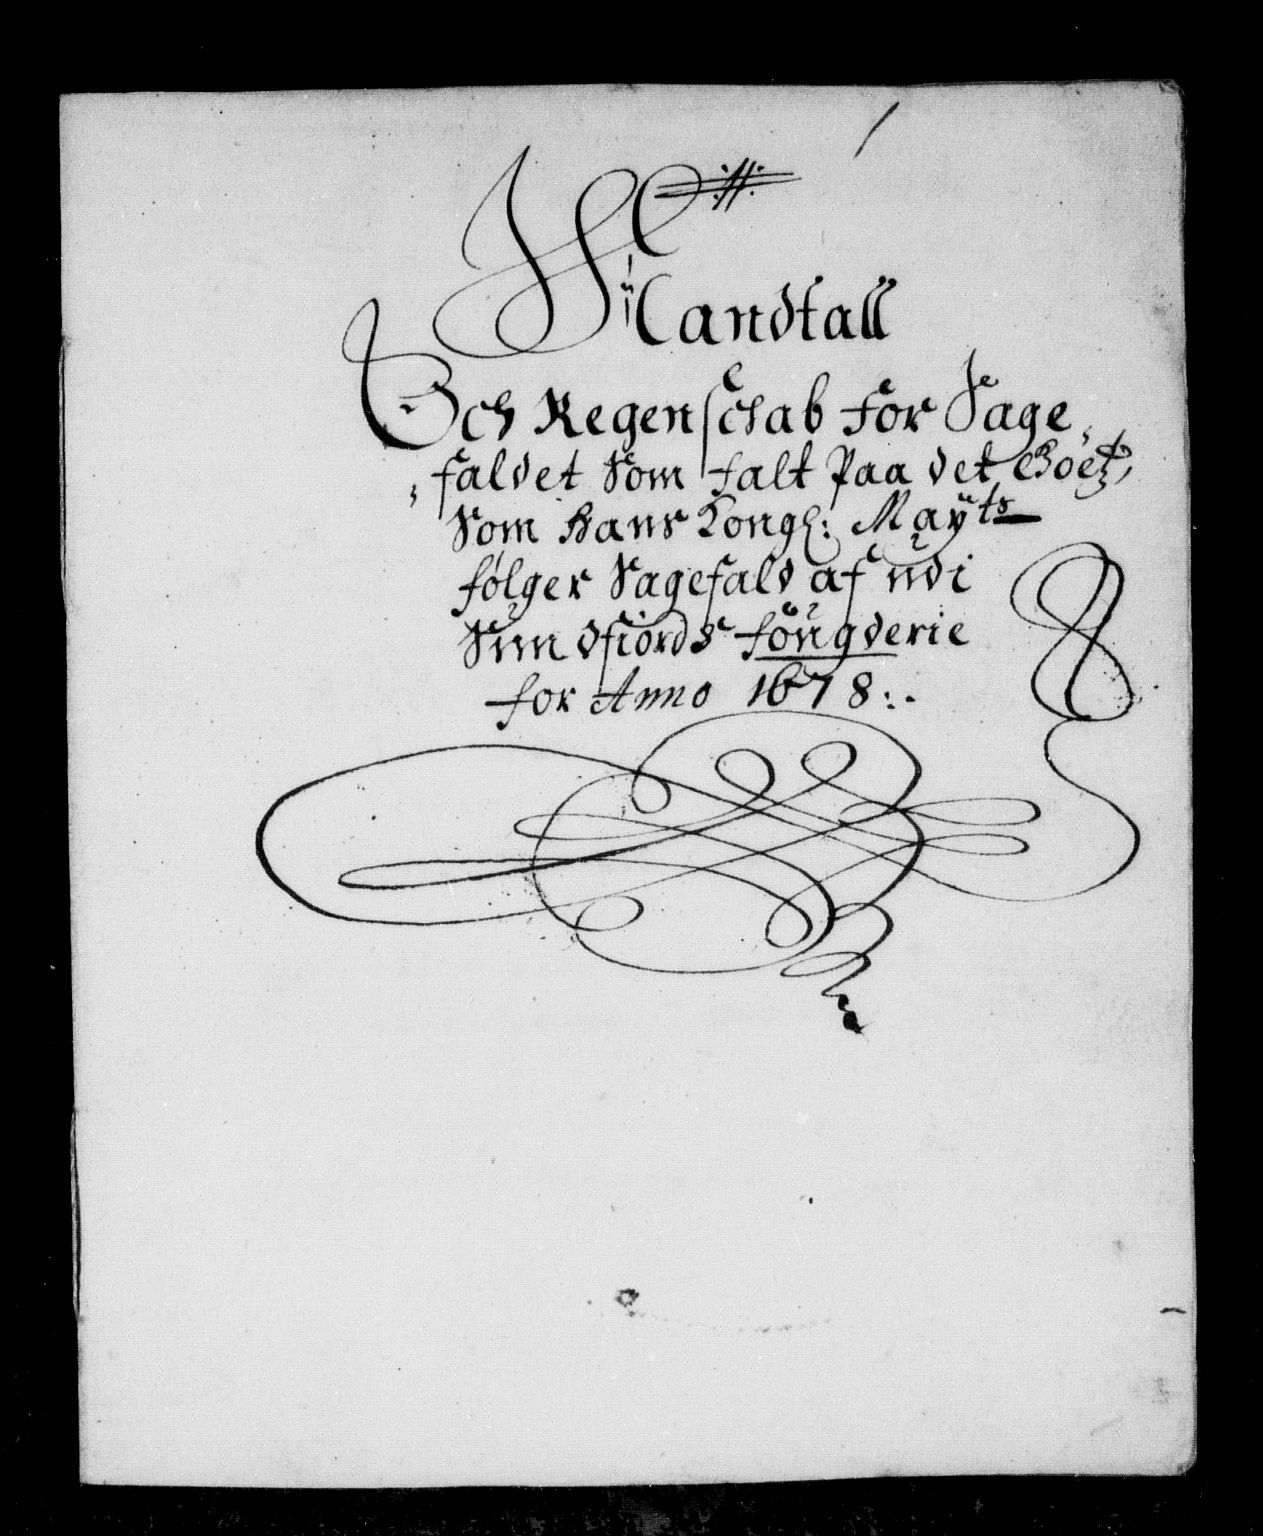 Mandtall
Och Regenschab for Sage,
,faldet Som falt Paa det Goetz,
Som Hans Kongl: Mayts
følger Sagefald af udi
Sundfiords fougderie
for Anno 1678:.